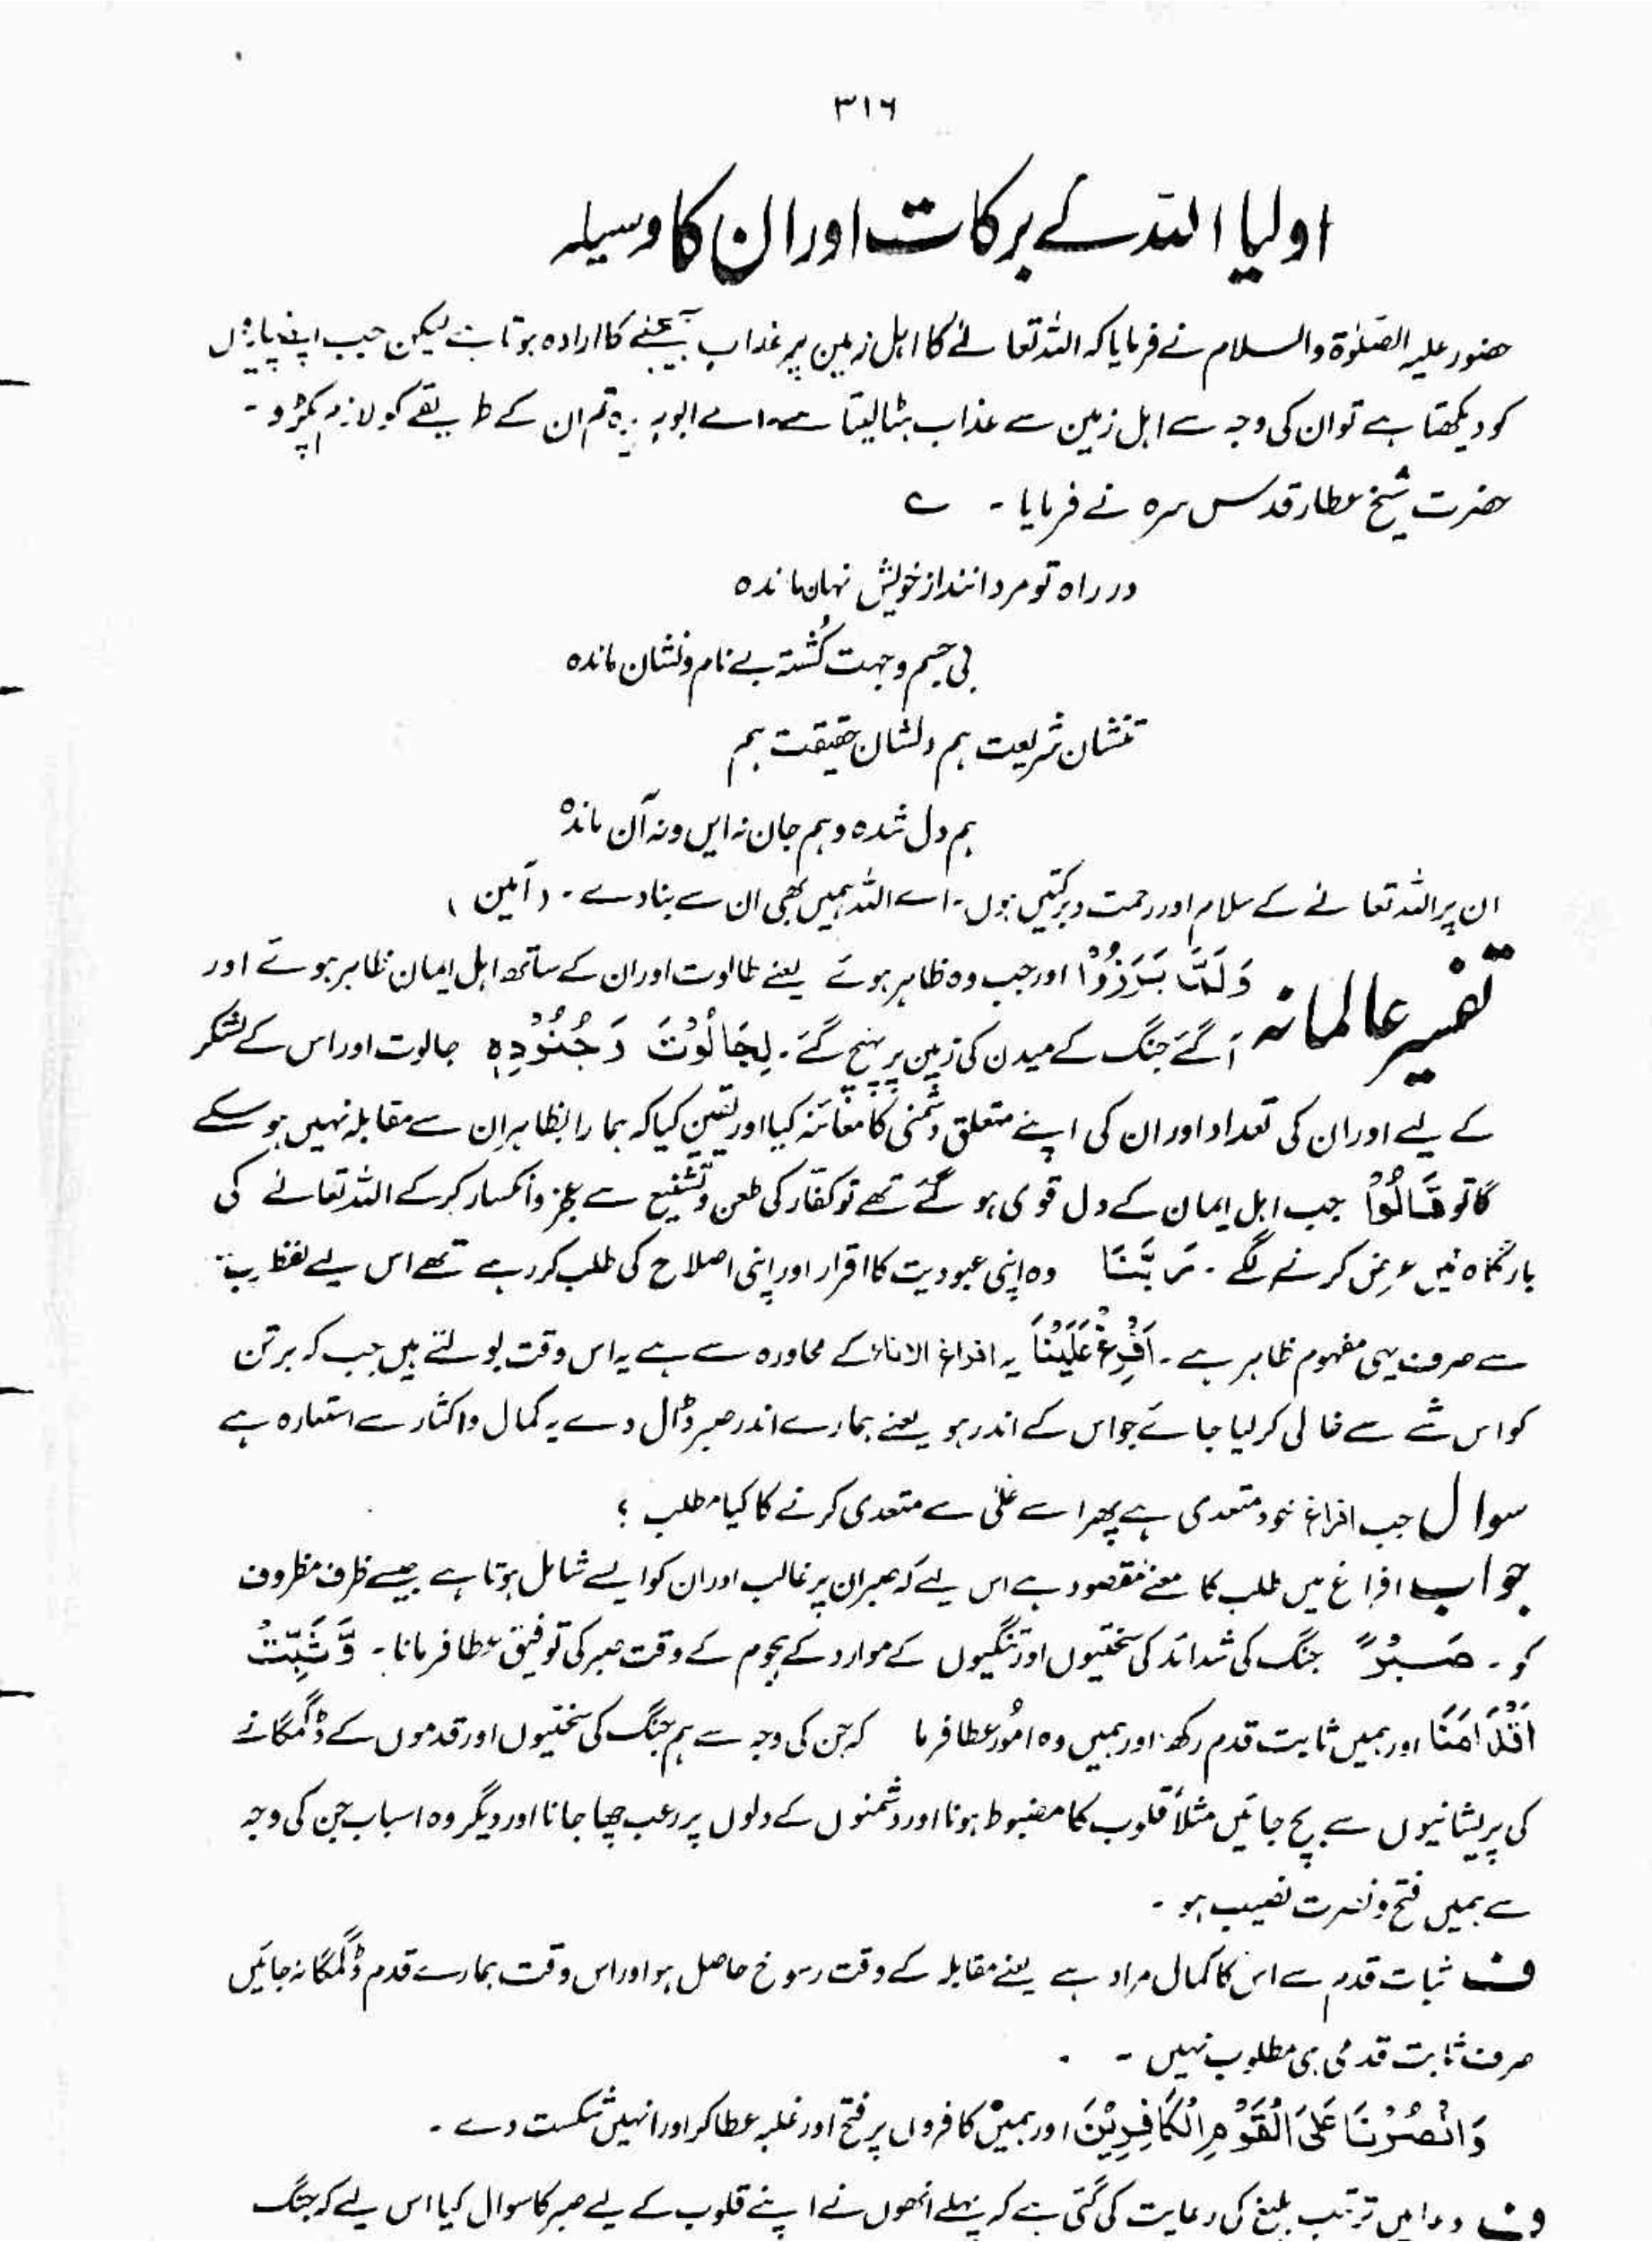 ۳۱۶
اولیا اللہ کے برکات اور ان کا وسیلہ
حضور علیہ الصلوٰۃ والسلام نے فرمایا کہ اللہ تعالےٰ کا اہل زمین پر عذاب بھیجنے کا ارادہ ہوتا ہے لیکن جب اپنے پیاروں
کو دیکھتا ہے تو ان کی وجہ سے اہل زمین سے عذاب ہٹا لیتا ہے۔ اے ابوہریرہ تم ان کے طریقے کو لازم پکڑو۔
حضرت شیخ عطار قدس سرہ نے فرمایا ۔ ؎
در راہ تو مردانند از خویش نہاں ماندہ
بی جسم وجہت گشتہ بے نام ونشان ماندہ
تنشان شریعت ہم دلشان حقیقت ہم
ہم دل شدہ وہم جان نہ ایں ونہ آں ماندہ
ان پر اللہ تعالےٰ کے سلام اور رحمت وبرکتیں ہوں۔ اے اللہ ہمیں بھی ان سے بنا دے ۔ (آمین)
تفسیر عالمانہ وَلَمَّا بَرَزُوْا اور جب وہ ظاہر ہوئے یعنے طالوت اور ان کے ساتھ اہل ایمان ظاہر ہوئے اور
آگئے جنگ کے میدن کی زمین پر پہنچ گئے۔ لِجَالُوْتَ وَجُنُوْدِہٖ جالوت اور اس کے لشکر
کے لیے اور ان کی تعداد اور ان کی اپنے متعلق دشمنی کا معائنہ کیا اور یقین کیا کہ ہمارا بظاہر ان سے مقابلہ نہیں ہو سکے
گا تو قَالُوْا جب اہل ایمان کے دل قوی ہو گئے تھے تو کفار کی طعن وتشنیع سے عجز وانکسار کر کے اللہ تعالےٰ کی
بارگاہ میں عرض کرنے لگے ۔ رَبَّنَا وہ اپنی عبودیت کا اقرار اور اپنی اصلاح کی طلب کر رہے تھے اس لیے لفظ ربّ
سے صرف یہی مفہوم ظاہر ہے ۔ اَفْرِغْ عَلَیْنَا یہ افراغ الاناء کے محاورہ سے ہے یہ اس وقت بولتے ہیں جب کہ برتن
کو اس شے سے خالی کر لیا جائے جو اس کے اندر ہو یعنے ہمارے اندر صبر ڈال دے یہ کمال واکثار سے استعارہ ہے
سوال جب افراغ خود متعدی ہے پھر اسے علیٰ سے متعدی کرنے کا کیا مطلب ؟
جواب افراغ میں طلب کا معنے مقصود ہے اس لیے کہ صبر ان پر غالب اور ان کو ایسے شامل ہوتا ہے جیسے ظرف مظروف
کو ۔ صَبْرًا جنگ کی شدائد کی سختیوں اور تنگیوں کے موارد کے ہجوم کے وقت صبر کی توفیق عطا فرمانا۔ وَّثَبِّتْ
اَقْدَامَنَا اور ہمیں ثابت قدم رکھ اور ہمیں وہ امور عطا فرما کہ جن کی وجہ سے ہم جنگ کی سختیوں اور قدموں کے ڈگمگانے
کی پریشانیوں سے بچ جائیں مثلاً قلوب کا مضبوط ہونا اور دشمنوں کے دلوں پر رعب چھا جانا اور دیگر وہ اسباب جن کی وجہ
سے ہمیں فتح ونصرت نصیب ہو ۔
ف ثبات قدم سے اس کا کمال مراد ہے یعنے مقابلہ کے وقت رسوخ حاصل ہو اور اس وقت ہمارے قدم ڈگمگا نہ جائیں
صرف ثابت قدمی ہی مطلوب نہیں ۔
وَانْصُرْنَا عَلَی الْقَوْمِ الْکَافِرِیْنَ اور ہمیں کافروں پر فتح اور غلبہ عطا کر اور انہیں شکست دے ۔
ف دعا میں ترتیب بلیغ کی رعایت کی گئی ہے کہ پہلے انھوں نے اپنے قلوب کے لیے صبر کا سوال کیا اس لیے کہ جنگ